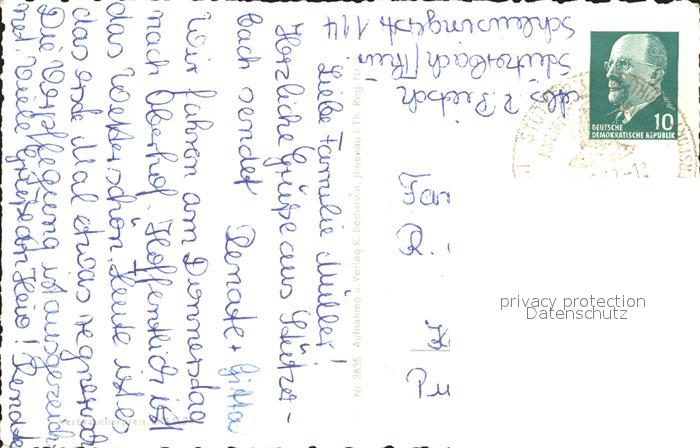 Liebe Familie Müller!
Herzliche Grüße aus Stützer-
bach sendet Renate + Gitta
Wir fahren am Donnerstag
nach Oberhof. Hoffentlich ist
das Wetter schön. Heute ist es
das erste Mal etwas regnerisch
Die Verpflegung ist ausgezeich
net. Viele Grüße an Heio! Renate
Abs. R. Pietsch
Stützerbach/Thür.
Schleusingerstr. 114
DEUTSCHE
DEMOKRATISCHE REPUBLIK 10
Fam
R.
Pu
Nr. 3635 Aufnahme u. Verlag R. Bechstein, Ilmenau i. Th. Reg. Nr.
Verbraucherpreis
privacy protection
Datenschutz